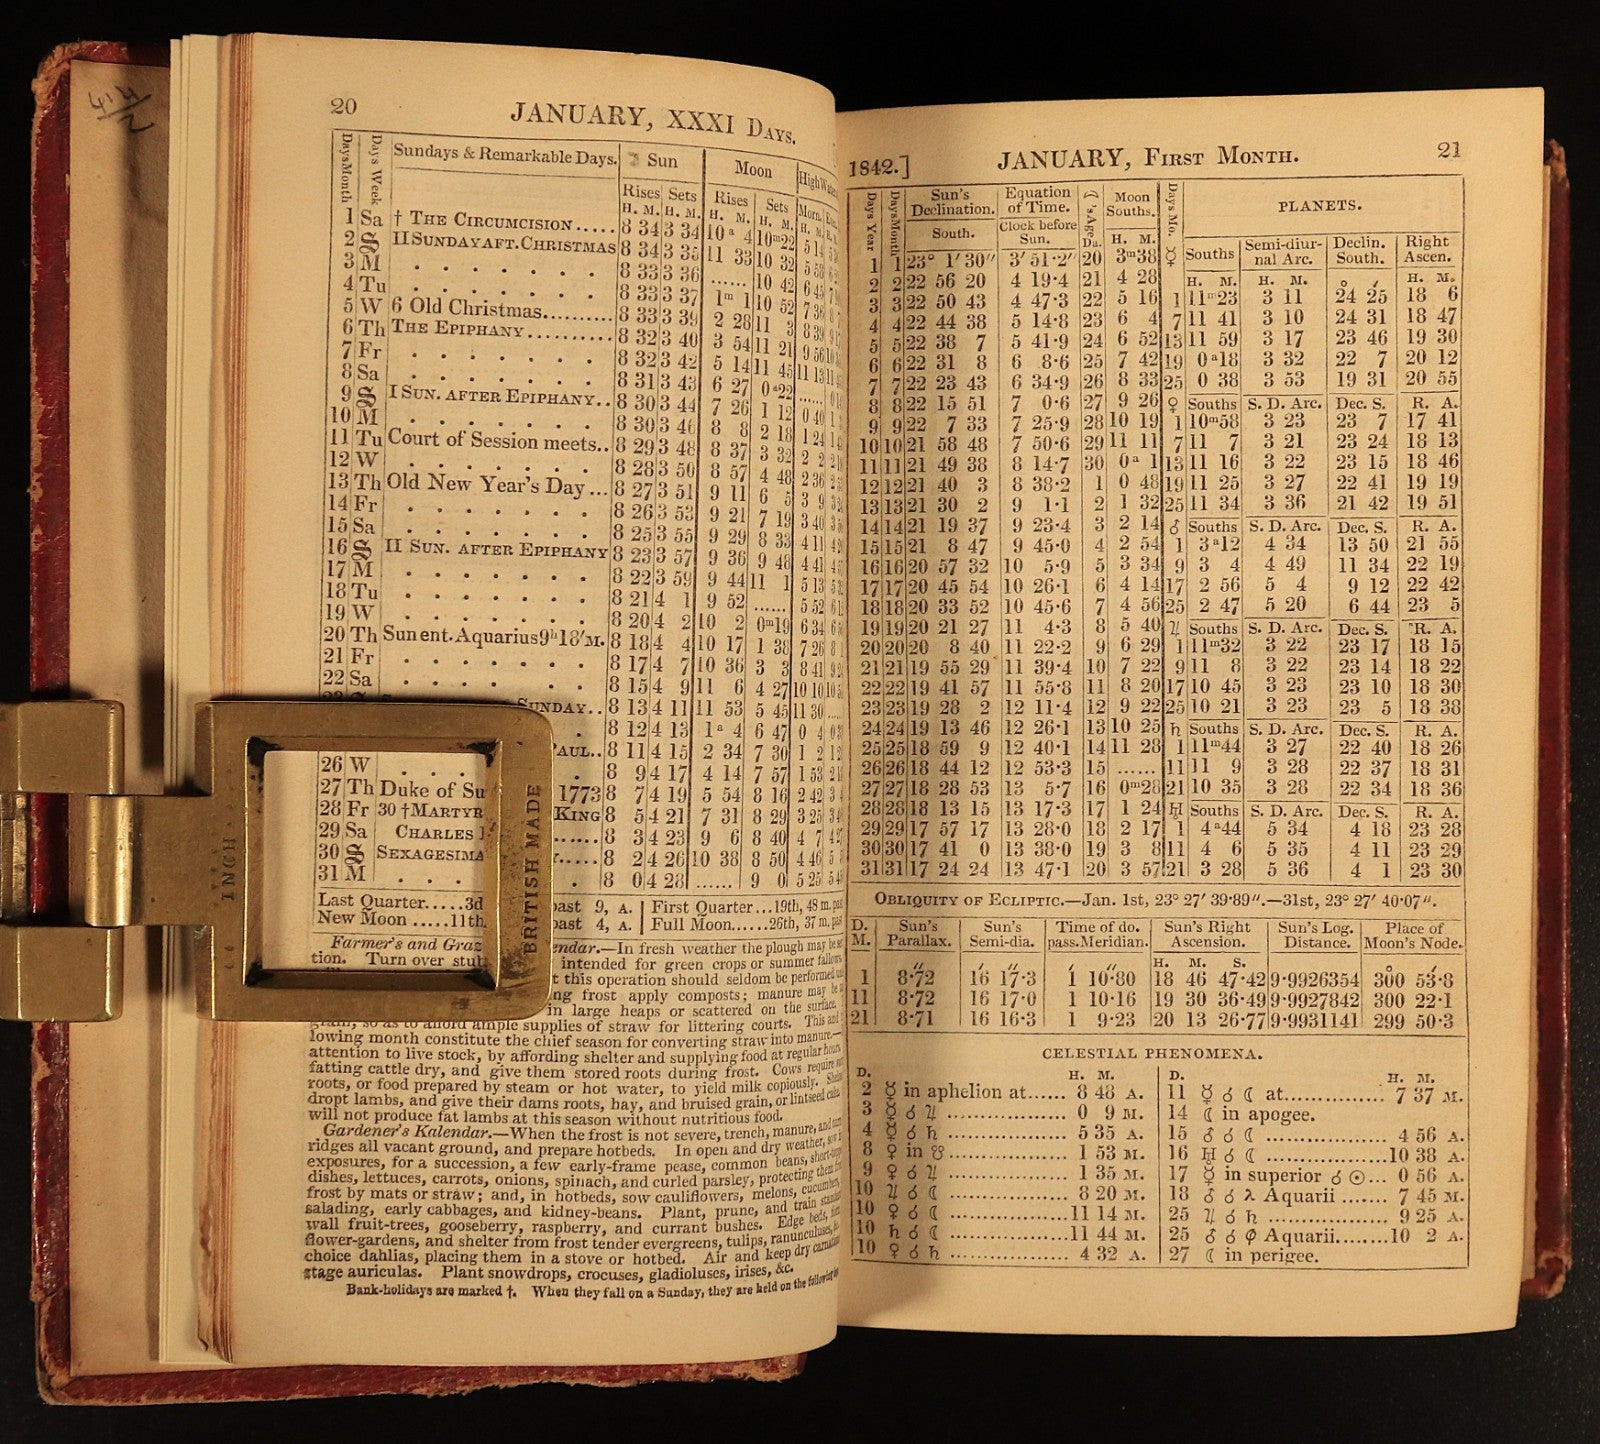 20 JANUARY, XXXI Days.
Days Month Days Week Sundays & Remarkable Days. Sun Moon High
Rises Sets Rises Sets Morn.
H. M. H. M. H. M. H. M. H. M.
1 Sa † The Circumcision ..... 8 34 3 34 10a 4 10m22
2 S II Sunday aft. Christmas 8 34 3 35 11 33 10 32
3 M . . . . . . . 8 33 3 36 ...... 10 42
4 Tu . . . . . . . 8 33 3 37 1m 1 10 52
5 W 6 Old Christmas.......... 8 33 3 39 2 28 11 3
6 Th The Epiphany.......... 8 32 3 40 3 54 11 21
7 Fr . . . . . . . 8 32 3 42 5 14 11 45
8 Sa . . . . . . . 8 31 3 43 6 27 0a22
9 S I Sun. after Epiphany.. 8 30 3 44 7 26 1 12
10 M . . . . . . . 8 30 3 46 8 8 2 18
11 Tu Court of Session meets.. 8 29 3 48 8 37 3 32
12 W . . . . . . . 8 28 3 50 8 57 4 48
13 Th Old New Year's Day ... 8 27 3 51 9 11 6 5
14 Fr . . . . . . . 8 26 3 53 9 21 7 19
15 Sa . . . . . . . 8 25 3 55 9 29 8 33
16 S II Sun. after Epiphany 8 23 3 57 9 36 9 48
17 M . . . . . . . 8 22 3 59 9 44 11 1
18 Tu . . . . . . . 8 21 4 1 9 52 ......
19 W . . . . . . . 8 20 4 2 10 2 0m19
20 Th Sun ent. Aquarius 9h 18′ M. 8 18 4 4 10 17 1 38
21 Fr . . . . . . . 8 17 4 7 10 36 3 3
22 Sa . . . . . . . 8 15 4 9 11 6 4 27
Sunday.. 8 13 4 11 11 53 5 45
. 8 12 4 13 1a 4 6 47
aul.. 8 11 4 15 2 34 7 30
26 W . . . . 8 9 4 17 4 14 7 57
27 Th Duke of Su 1773 8 7 4 19 5 54 8 16
28 Fr 30 † Martyr King 8 5 4 21 7 31 8 29
29 Sa Charles I ...... 8 3 4 23 9 6 8 40
30 S Sexagesima ..... 8 2 4 26 10 38 8 50
31 M . . . . 8 0 4 28 ...... 9 0
Last Quarter.....3d past 9, A. First Quarter...19th, 48 m. past
New Moon .....11th past 4, A. Full Moon......26th, 37 m. past
Farmer's and Graz endar.—In fresh weather the plough may be set
tion. Turn over stub intended for green crops or summer fallows
t this operation should seldom be performed
ng frost apply composts; manure may be
in large heaps or scattered on the surface.
grain, so as to afford ample supplies of straw for littering courts. This and
lowing month constitute the chief season for converting straw into manure.—
attention to live stock, by affording shelter and supplying food at regular hours
fatting cattle dry, and give them stored roots during frost. Cows require
roots, or food prepared by steam or hot water, to yield milk copiously.
dropt lambs, and give their dams roots, hay, and bruised grain, or lintseed cake
will not produce fat lambs at this season without nutritious food.
Gardener's Kalendar.—When the frost is not severe, trench, manure, and
ridges all vacant ground, and prepare hotbeds. In open and dry weather, sow
exposures, for a succession, a few early-frame pease, common beans, short-
dishes, lettuces, carrots, onions, spinach, and curled parsley, protecting them
frost by mats or straw; and, in hotbeds, sow cauliflowers, melons, cucumbers,
salading, early cabbages, and kidney-beans. Plant, prune, and train
wall fruit-trees, gooseberry, raspberry, and currant bushes. Edge beds,
flower-gardens, and shelter from frost tender evergreens, tulips, ranunculuses,
choice dahlias, placing them in a stove or hotbed. Air and keep dry
stage auriculas. Plant snowdrops, crocuses, gladioluses, irises, &c.
Bank-holidays are marked †. When they fall on a Sunday, they are held on the following
INCH
BRITISH MADE
1842.] JANUARY, First Month. 21
Days Year Days Month Sun's Declination. Equation of Time. ☾'s Age Moon Souths. Days Mo. PLANETS.
South. Clock before Sun. Da. H. M. ☿ Souths Semi-diurnal Arc. Declin. South. Right Ascen.
1 1 23° 1′ 30″ 3′ 51·2″ 20 3m38
H. M. H. M. ° ′ H. M.
2 2 22 56 20 4 19·4 21 4 28
3 3 22 50 43 4 47·3 22 5 16 1 11m23 3 11 24 25 18 6
4 4 22 44 38 5 14·8 23 6 4 7 11 41 3 10 24 31 18 47
5 5 22 38 7 5 41·9 24 6 52 13 11 59 3 17 23 46 19 30
6 6 22 31 8 6 8·6 25 7 42 19 0a18 3 32 22 7 20 12
7 7 22 23 43 6 34·9 26 8 33 25 0 38 3 53 19 31 20 55
8 8 22 15 51 7 0·6 27 9 26 ♀ Souths S. D. Arc. Dec. S. R. A.
9 9 22 7 33 7 25·9 28 10 19 1 10m58 3 23 23 7 17 41
10 10 21 58 48 7 50·6 29 11 11 7 11 7 3 21 23 24 18 13
11 11 21 49 38 8 14·7 30 0a 1 13 11 16 3 22 23 15 18 46
12 12 21 40 3 8 38·2 1 0 48 19 11 25 3 27 22 41 19 19
13 13 21 30 2 9 1·1 2 1 32 25 11 34 3 36 21 42 19 51
14 14 21 19 37 9 23·4 3 2 14 ♂ Souths S. D. Arc. Dec. S. R. A.
15 15 21 8 47 9 45·0 4 2 54 1 3a12 4 34 13 50 21 55
16 16 20 57 32 10 5·9 5 3 34 9 3 4 4 49 11 34 22 19
17 17 20 45 54 10 26·1 6 4 14 17 2 56 5 4 9 12 22 42
18 18 20 33 52 10 45·6 7 4 56 25 2 47 5 20 6 44 23 5
19 19 20 21 27 11 4·3 8 5 40 ♃ Souths S. D. Arc. Dec. S. R. A.
20 20 20 8 40 11 22·2 9 6 29 1 11m32 3 22 23 17 18 15
21 21 19 55 29 11 39·4 10 7 22 9 11 8 3 22 23 14 18 22
22 22 19 41 57 11 55·8 11 8 20 17 10 45 3 23 23 10 18 30
23 23 19 28 2 12 11·4 12 9 22 25 10 21 3 23 23 5 18 38
24 24 19 13 46 12 26·1 13 10 25 ♄ Souths S. D. Arc. Dec. S. R. A.
25 25 18 59 9 12 40·1 14 11 28 1 11m44 3 27 22 40 18 26
26 26 18 44 12 12 53·3 15 ...... 11 11 9 3 28 22 37 18 31
27 27 18 28 53 13 5·7 16 0m28 21 10 35 3 28 22 34 18 36
28 28 18 13 15 13 17·3 17 1 24 ♅ Souths S. D. Arc. Dec. S. R. A.
29 29 17 57 17 13 28·0 18 2 17 1 4a44 5 34 4 18 23 28
30 30 17 41 0 13 38·0 19 3 8 11 4 6 5 35 4 11 23 29
31 31 17 24 24 13 47·1 20 3 57 21 3 28 5 36 4 1 23 30
Obliquity of Ecliptic.—Jan. 1st, 23° 27′ 39·89″.—31st, 23° 27′ 40·07″.
D. M. Sun's Parallax. Sun's Semi-dia. Time of do. pass. Meridian. Sun's Right Ascension. Sun's Log. Distance. Place of Moon's Node.
″ ′ ″ ′ ″ H. M. S. ° ′
1 8·72 16 17·3 1 10·80 18 46 47·42 9·9926354 300 53·8
11 8·72 16 17·0 1 10·16 19 30 36·49 9·9927842 300 22·1
21 8·71 16 16·3 1 9·23 20 13 26·77 9·9931141 299 50·3
CELESTIAL PHENOMENA.
D. H. M.
2 ☿ in aphelion at...... 8 48 A.
3 ☿ ☌ ♃ .................. 0 9 M.
4 ☿ ☌ ♄ .................. 5 35 A.
8 ♀ in ☋.................. 1 53 M.
9 ♀ ☌ ♃ .................. 1 35 M.
10 ♃ ☌ ☾ .................. 8 20 M.
10 ♀ ☌ ☾ ..................11 14 M.
10 ♄ ☌ ☾ ..................11 44 M.
10 ♀ ☌ ♄ .................. 4 32 A.
D. H. M.
11 ☿ ☌ ☾ at............... 7 37 M.
14 ☾ in apogee.
15 ♂ ☌ ☾ .................. 4 56 A.
16 ♅ ☌ ☾ ..................10 38 A.
17 ☿ in superior ☌ ☉... 0 56 A.
18 ♂ ☌ λ Aquarii ....... 7 45 M.
25 ♃ ☌ ♄ .................. 9 25 A.
25 ♂ ☌ φ Aquarii........10 2 A.
27 ☾ in perigee.